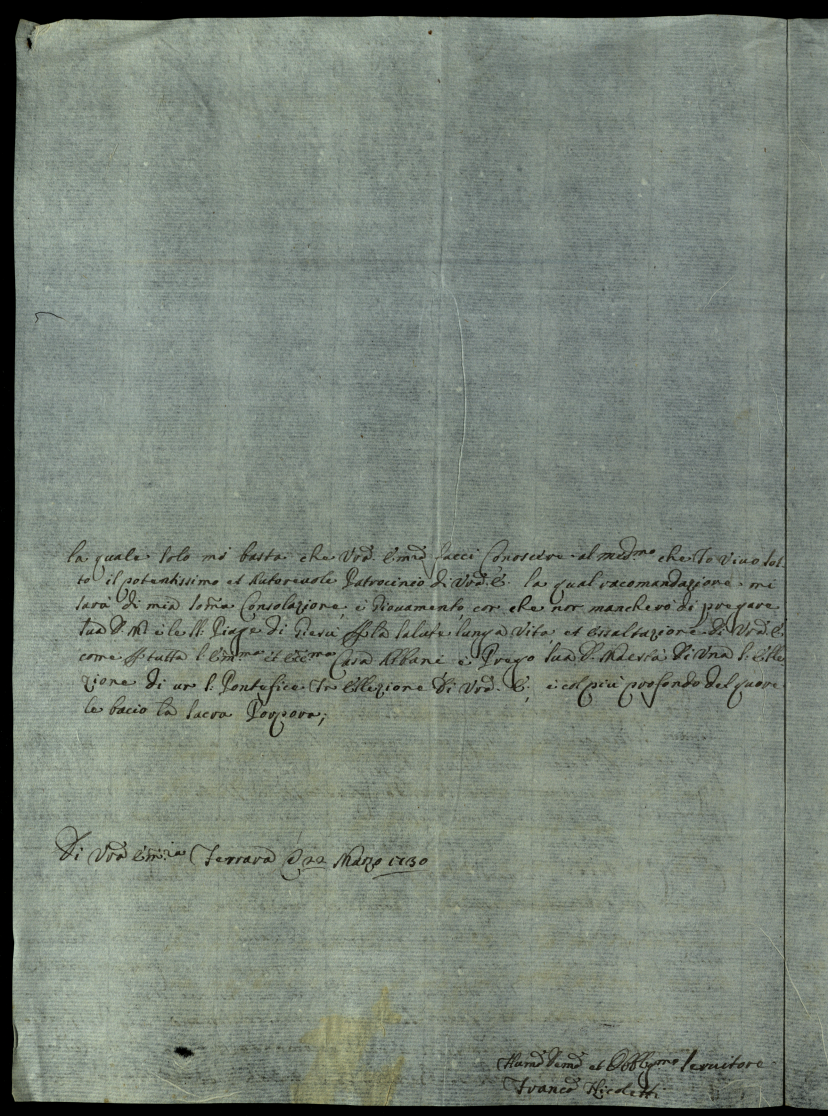 la quale solo mi basta che Vra. Emã. facci Conoscere al medmo che Io vivo sot-
to il potentissimo et Autorevole Patrocinio di Vra. E. la qual racomandazione mi
sarà di mia soma Consolazione, è Giovamento, con che non mancherò di pregare
Sua D. Mtà è le SS. Piage di Giesù per la salute lunga Vita et essaltazione di Vra. E.
come per tutta l'Emma et Ecc.ma Casa Albani è Prego Sua D. Maestà di Una S. Elle-
zione di un S. Pontefice In Ellezione di Vra. E.; è col più profondo del quore
le bacio la sacra Porpora;
Di Vra Emza Ferrara 22 Marzo 1730
et Obblgmo Servitore
Franco Nicoletti